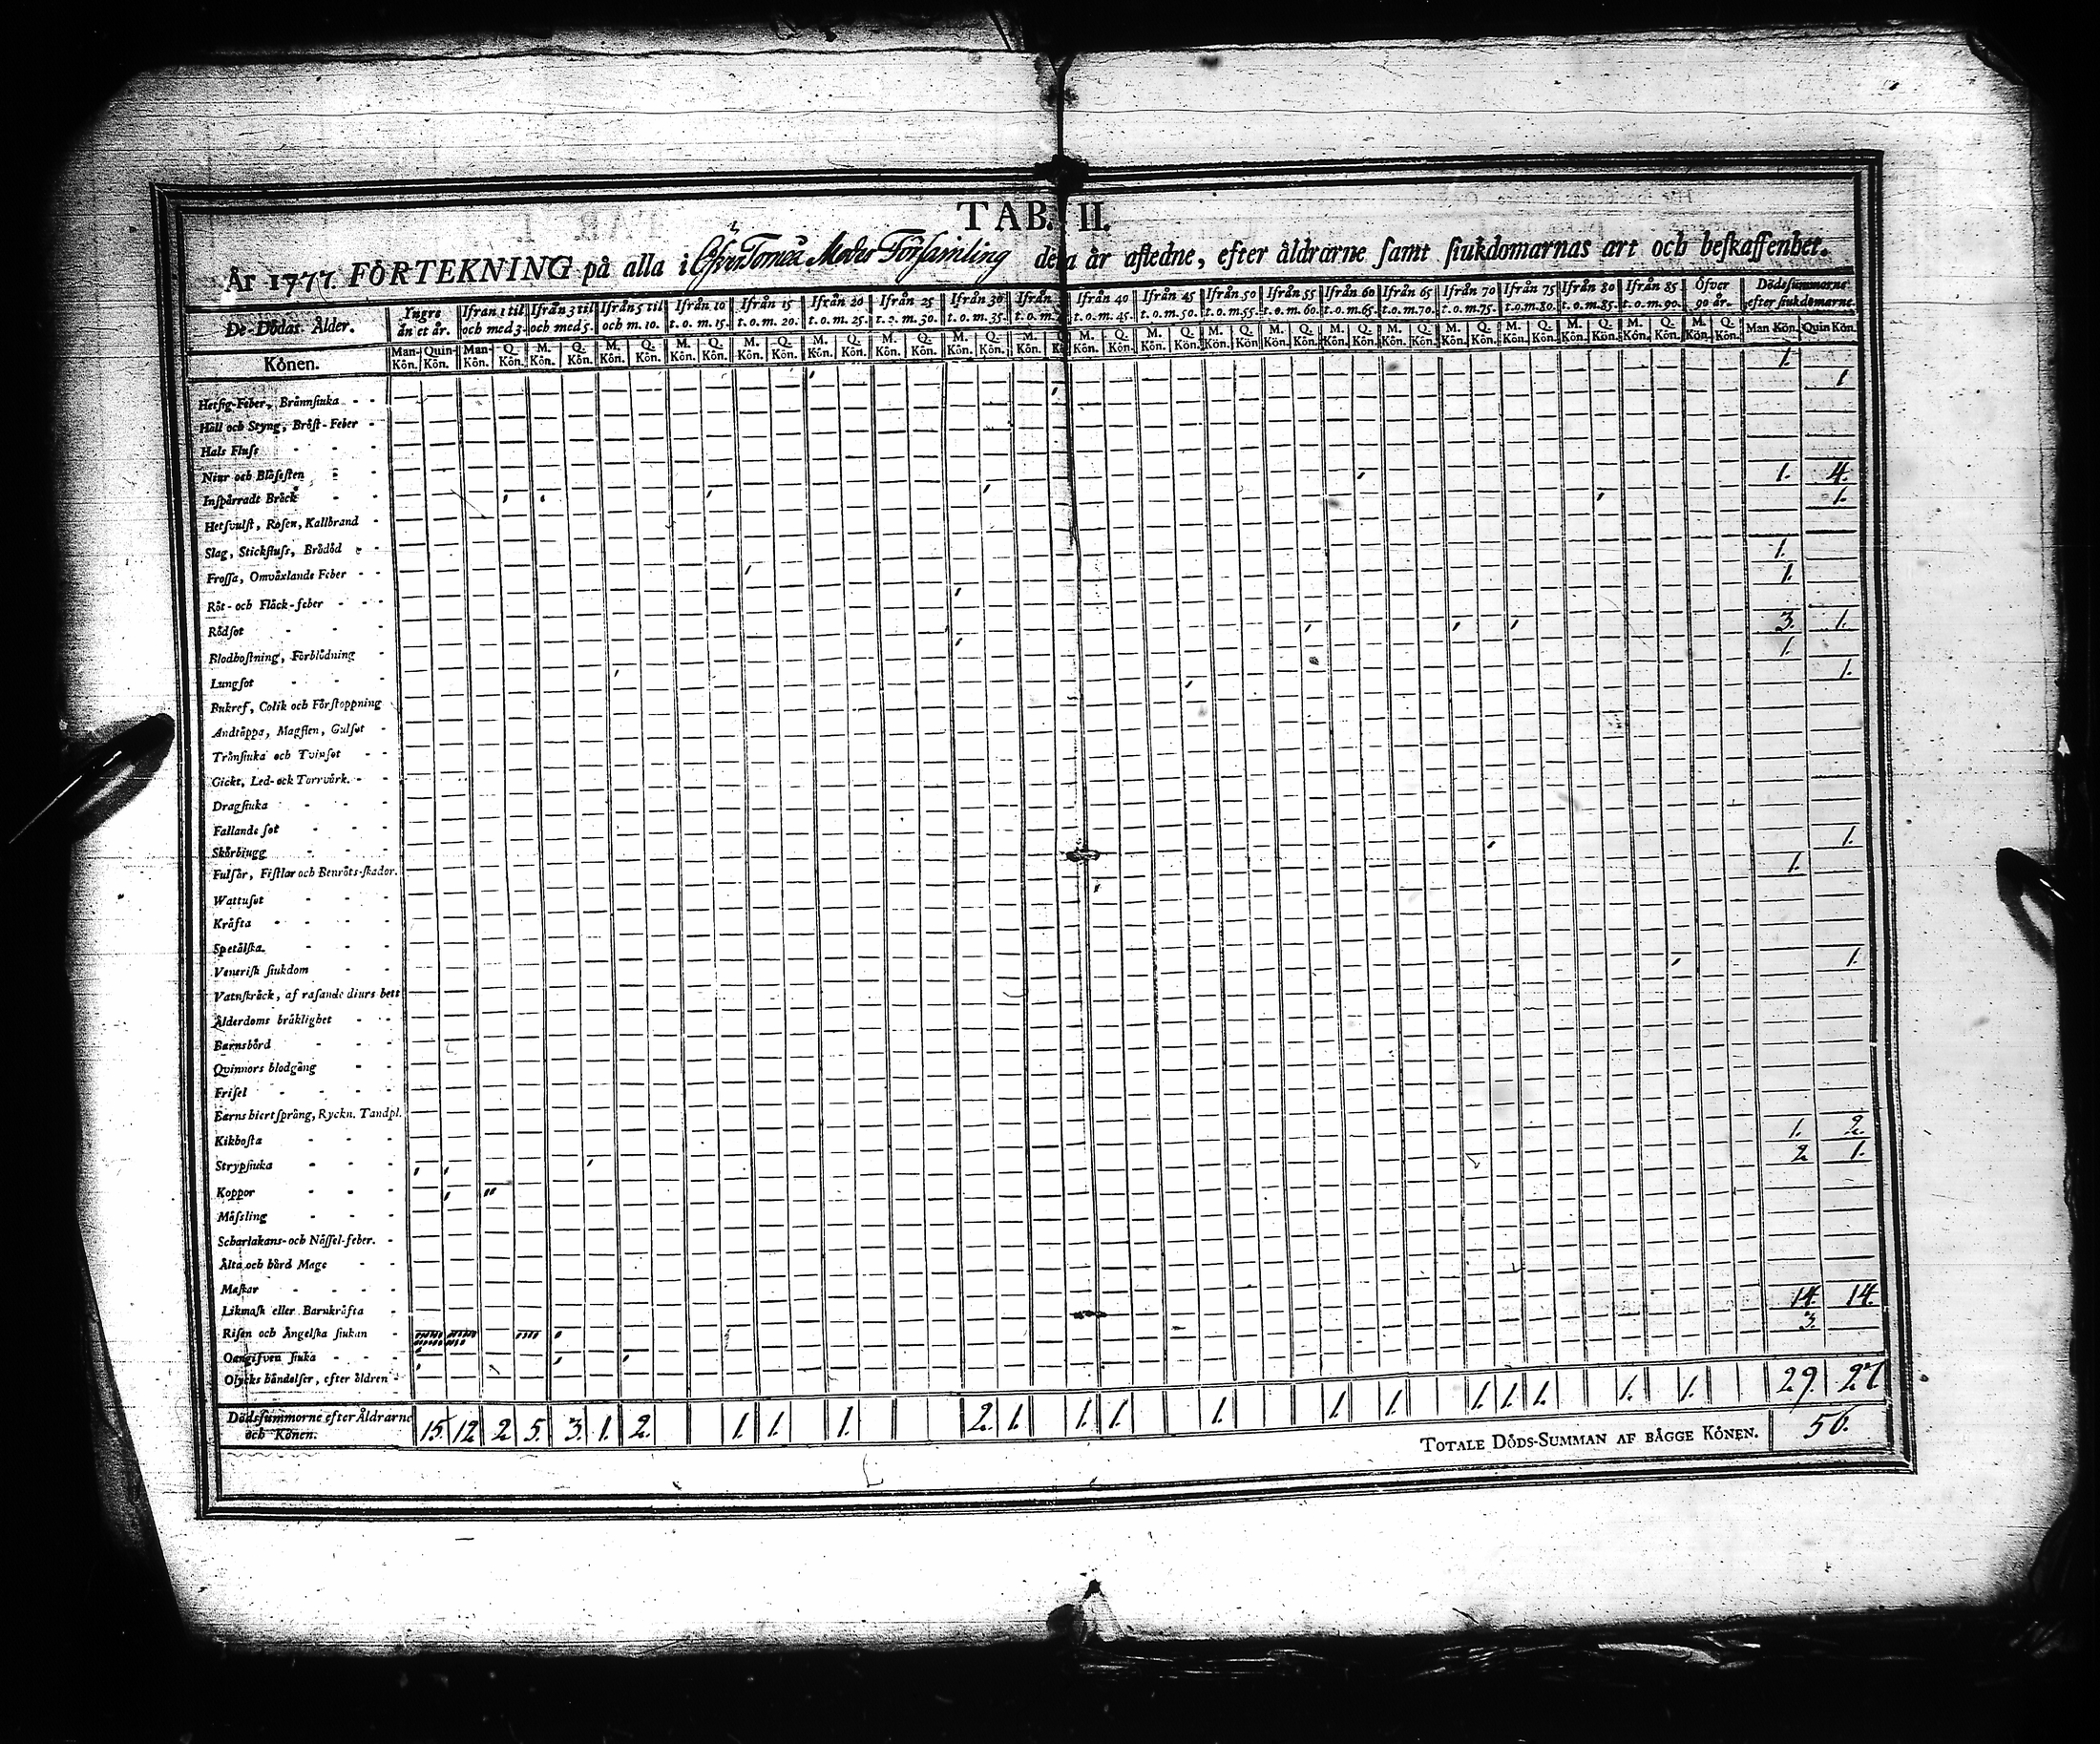 TAB. II.
År 1777 FÖRTEKNING på alla i Öfver Torneå Moder Församling detta år afledne, efter åldrarne samt siukdomarnas art och beskaffenhet.
De Dödas Ålder. Yngre än et år. Ifrån 1 til och med 3. Ifrån 3 til och med 5. Ifrån 5 til och m. 10. Ifrån 10 t. o. m. 15. Ifrån 15 t. o. m. 20. Ifrån 20 t. o. m. 25. Ifrån 25 t. o. m. 30. Ifrån 30 t. o. m. 35. Ifrån t. o. m. Ifrån 40 t. o. m. 45. Ifrån 45 t. o. m. 50. Ifrån 50 t. o. m. 55. Ifrån 55 t. o. m. 60. Ifrån 60 t. o. m. 65. Ifrån 65 t. o. m. 70. Ifrån 70 t. o. m. 75. Ifrån 75 t. o. m. 80. Ifrån 80 t. o. m. 85. Ifrån 85 t. o. m. 90. Öfver 90 år. Dödssummorne efter siukdomarne.
Könen. Man-Kön. Quin-Kön. Man-Kön. Q. Kön. M. Kön. Q. Kön. M. Kön. Q. Kön. M. Kön. Q. Kön. M. Kön. Q. Kön. M. Kön. Q. Kön. M. Kön. Q. Kön. M. Kön. Q. Kön. M. Kön. M. Kön. Q. Kön. M. Kön. Q. Kön. M. Kön. Q. Kön. M. Kön. Q. Kön. M. Kön. Q. Kön. M. Kön. Q. Kön. M. Kön. Q. Kön. M. Kön. Q. Kön. M. Kön. Q. Kön. M. Kön. Q. Kön. M. Kön. Q. Kön. Man Kön. Quin Kön.
Hetsig-Feber, Brännsiuka 1.
Håll och Styng, Bröst-Feber 1
Hals Fluss
Niur och Blåsesten
Inspärradt Bråck 1. 4.
Hetsvulst, Rosen, Kallbrand 1.
Slag, Stickfluss, Brådöd
Frossa, Omväxlande Feber 1.
Röt- och Fläck-feber 1.
Rödsot
Blodhostning, Förblödning 3. 1.
Lungsot 1.
Bukref, Colik och Förstoppning 1.
Andtäppa, Magsten, Gulsot
Trånsiuka och Tvinsot
Gickt, Led- och Torrvärk.
Dragsiuka
Fallande sot
Skörbiugg
Fulsår, Fistlar och Benröts-skador. 1.
Wattusot 1.
Kräfta
Spetälska
Venerisk siukdom
Vatnskräck, af rasande diurs bett 1.
Ålderdoms bräklighet
Barnsbörd
Qvinnors blodgång
Frisel
Barns hiertsprång, Ryckn. Tandpl.
Kikhosta
Strypsiuka 1. 2.
Koppor 2 1.
Mässling
Scharlakans- och Nässel-feber.
Älta och hård Mage
Maskar
Likmask eller Barnkräfta
Risen och Ängelska siukan
Oangifven siuka 14. 14.
Olycks händelser, efter åldren 3.
Dödssummorne efter Åldrarne och Könen. 15. 12 2 5. 3. 1. 2. 1. 1. 1. 2. 1. 1. 1. 1. 1. 1. 1. 1. 1. 1. 1. 29. 27.
TOTALE DÖDS-SUMMAN AF BÄGGE KÖNEN. 56.